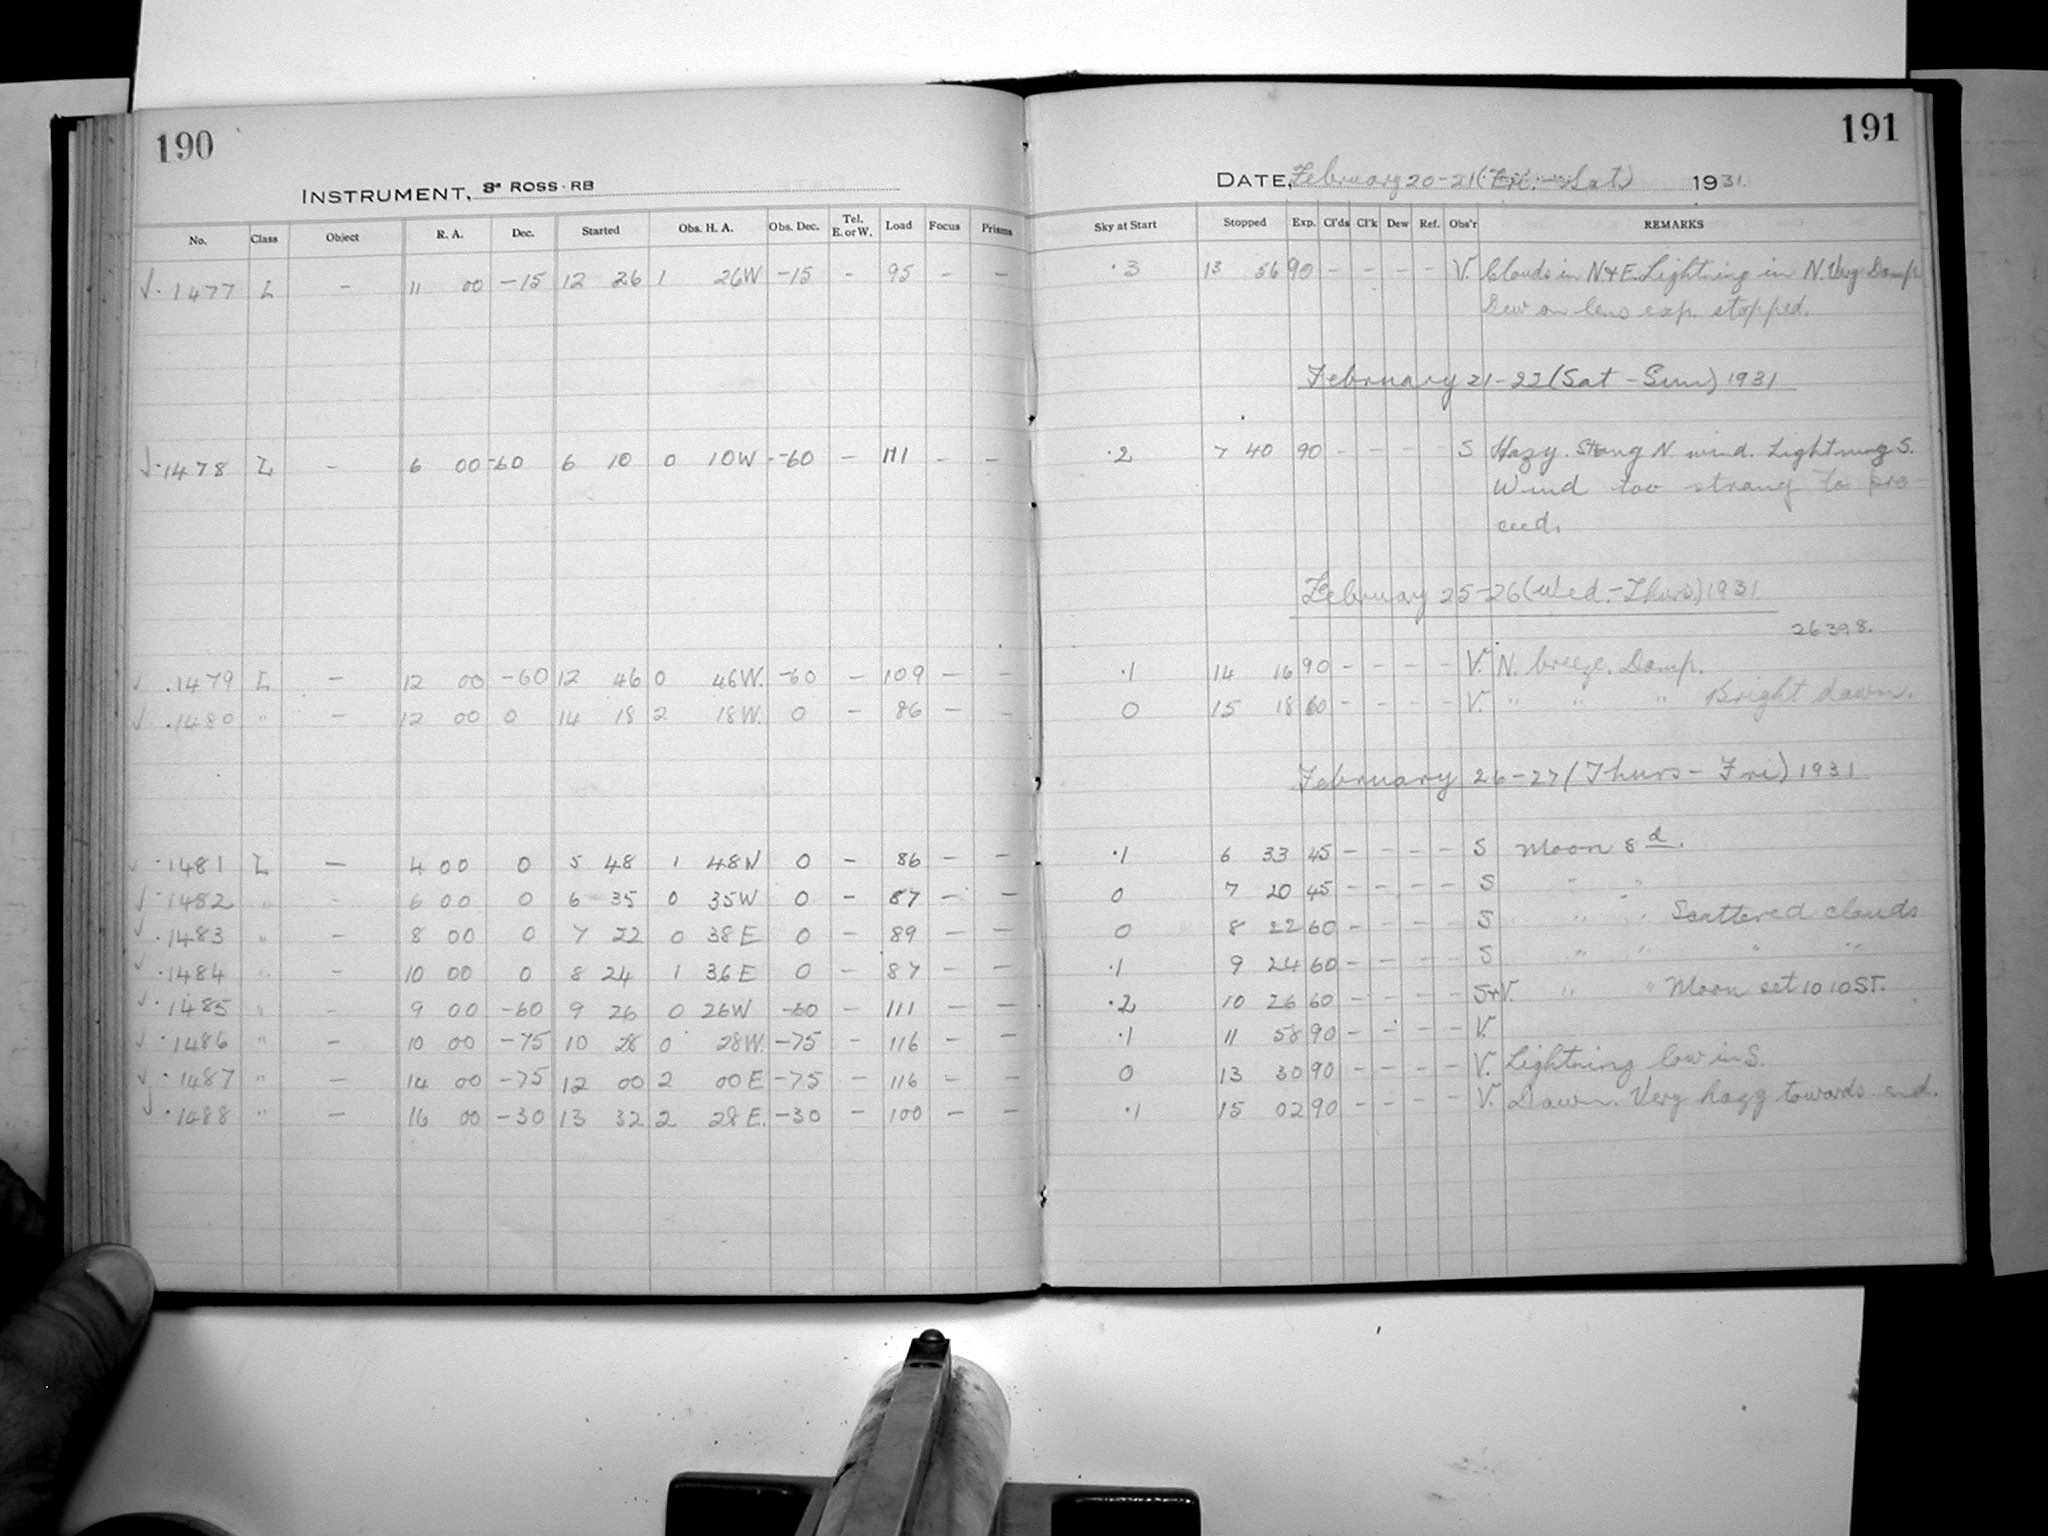 190
INSTRUMENT, 3" ROSS-RB
No. Class Object R. A. Dec. Started Obs. H. A. Obs. Dec. Tel. E. or W. Load Focus Prisms
√ · 1477 L - 11 00 -15 12 26 1 26W -15 - 95 - -
√ · 1478 L - 6 00 -60 6 10 0 10W -60 - 111 - -
√ · 1479 L - 12 00 -60 12 46 0 46W. -60 - 109 - -
√ · 1480 " - 12 00 0 14 18 2 18W. 0 - 86 - -
√ · 1481 L - 4 00 0 5 48 1 48W 0 - 86 - -
√ · 1482 " - 6 00 0 6 35 0 35W 0 - 87 - -
√ · 1483 " - 8 00 0 7 22 0 38E 0 - 89 - -
√ · 1484 " - 10 00 0 8 24 1 36E 0 - 87 - -
√ · 1485 " - 9 00 -60 9 26 0 26W -60 - 111 - -
√ · 1486 " - 10 00 -75 10 28 0 28W. -75 - 116 - -
√ · 1487 " - 14 00 -75 12 00 2 00E -75 - 116 - -
√ · 1488 " - 16 00 -30 13 32 2 28E. -30 - 100 - -
191
DATE, February 20-21 (Fri. - Sat) 1931.
Sky at Start Stopped Exp. Cl'ds Cl'k Dew Ref. Obs'r REMARKS
·3 13 56 90 - - - - V. Clouds in N+E. Lightning in N. Very Damp
Dew on lens exp. stopped.
February 21-22 (Sat - Sun) 1931
·2 7 40 90 - - - - S Hazy. Strong N wind. Lightning S.
Wind too strong to pro-
ceed.
February 25-26 (Wed. - Thurs) 1931
26398.
·1 14 16 90 - - - - V. N. breeze. Damp.
0 15 18 60 - - - - V. " " " Bright dawn.
February 26-27 (Thurs - Fri) 1931
·1 6 33 45 - - - - S Moon 8d.
0 7 20 45 - - - - S " "
0 8 22 60 - - - - S " " Scattered clouds
·1 9 24 60 - - - - S " " " "
·2 10 26 60 - - - - S+V. " " Moon set 10 10 ST.
·1 11 58 90 - - - - V.
0 13 30 90 - - - - V. Lightning low in S.
·1 15 02 90 - - - - V. Dawn. Very hazy towards end.